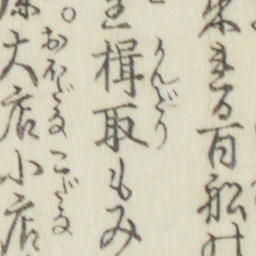 来る百船の
楫取もみ
かんどり
大店小店
おほだなこだな